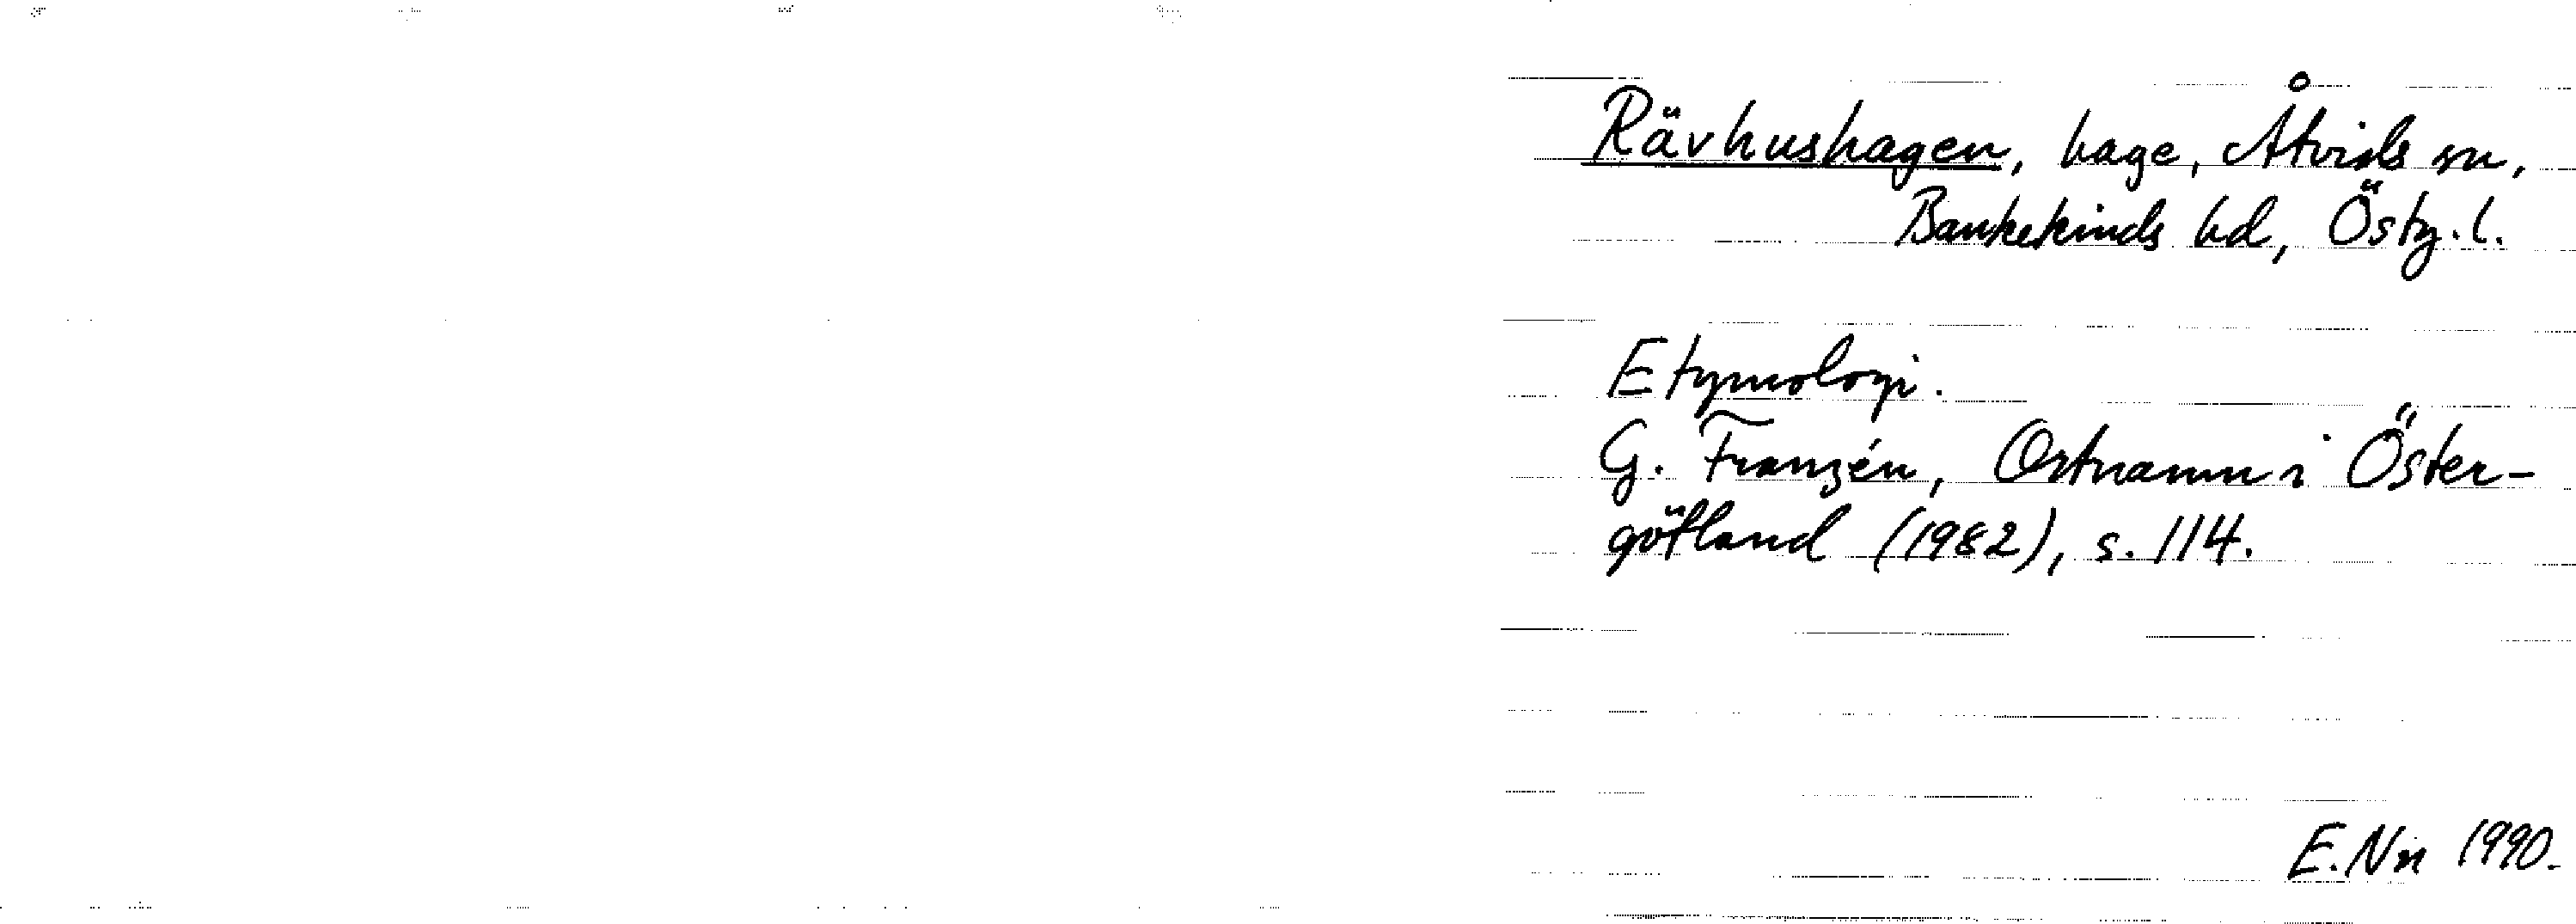 Rävhushagen, hage, Åtvids sn,
Bankekinds hd, Östg.l.
Etymologi.
G. Franzén, Ortnamn i Öster-
götland (1982), s. 114.
E. Nn 1990.